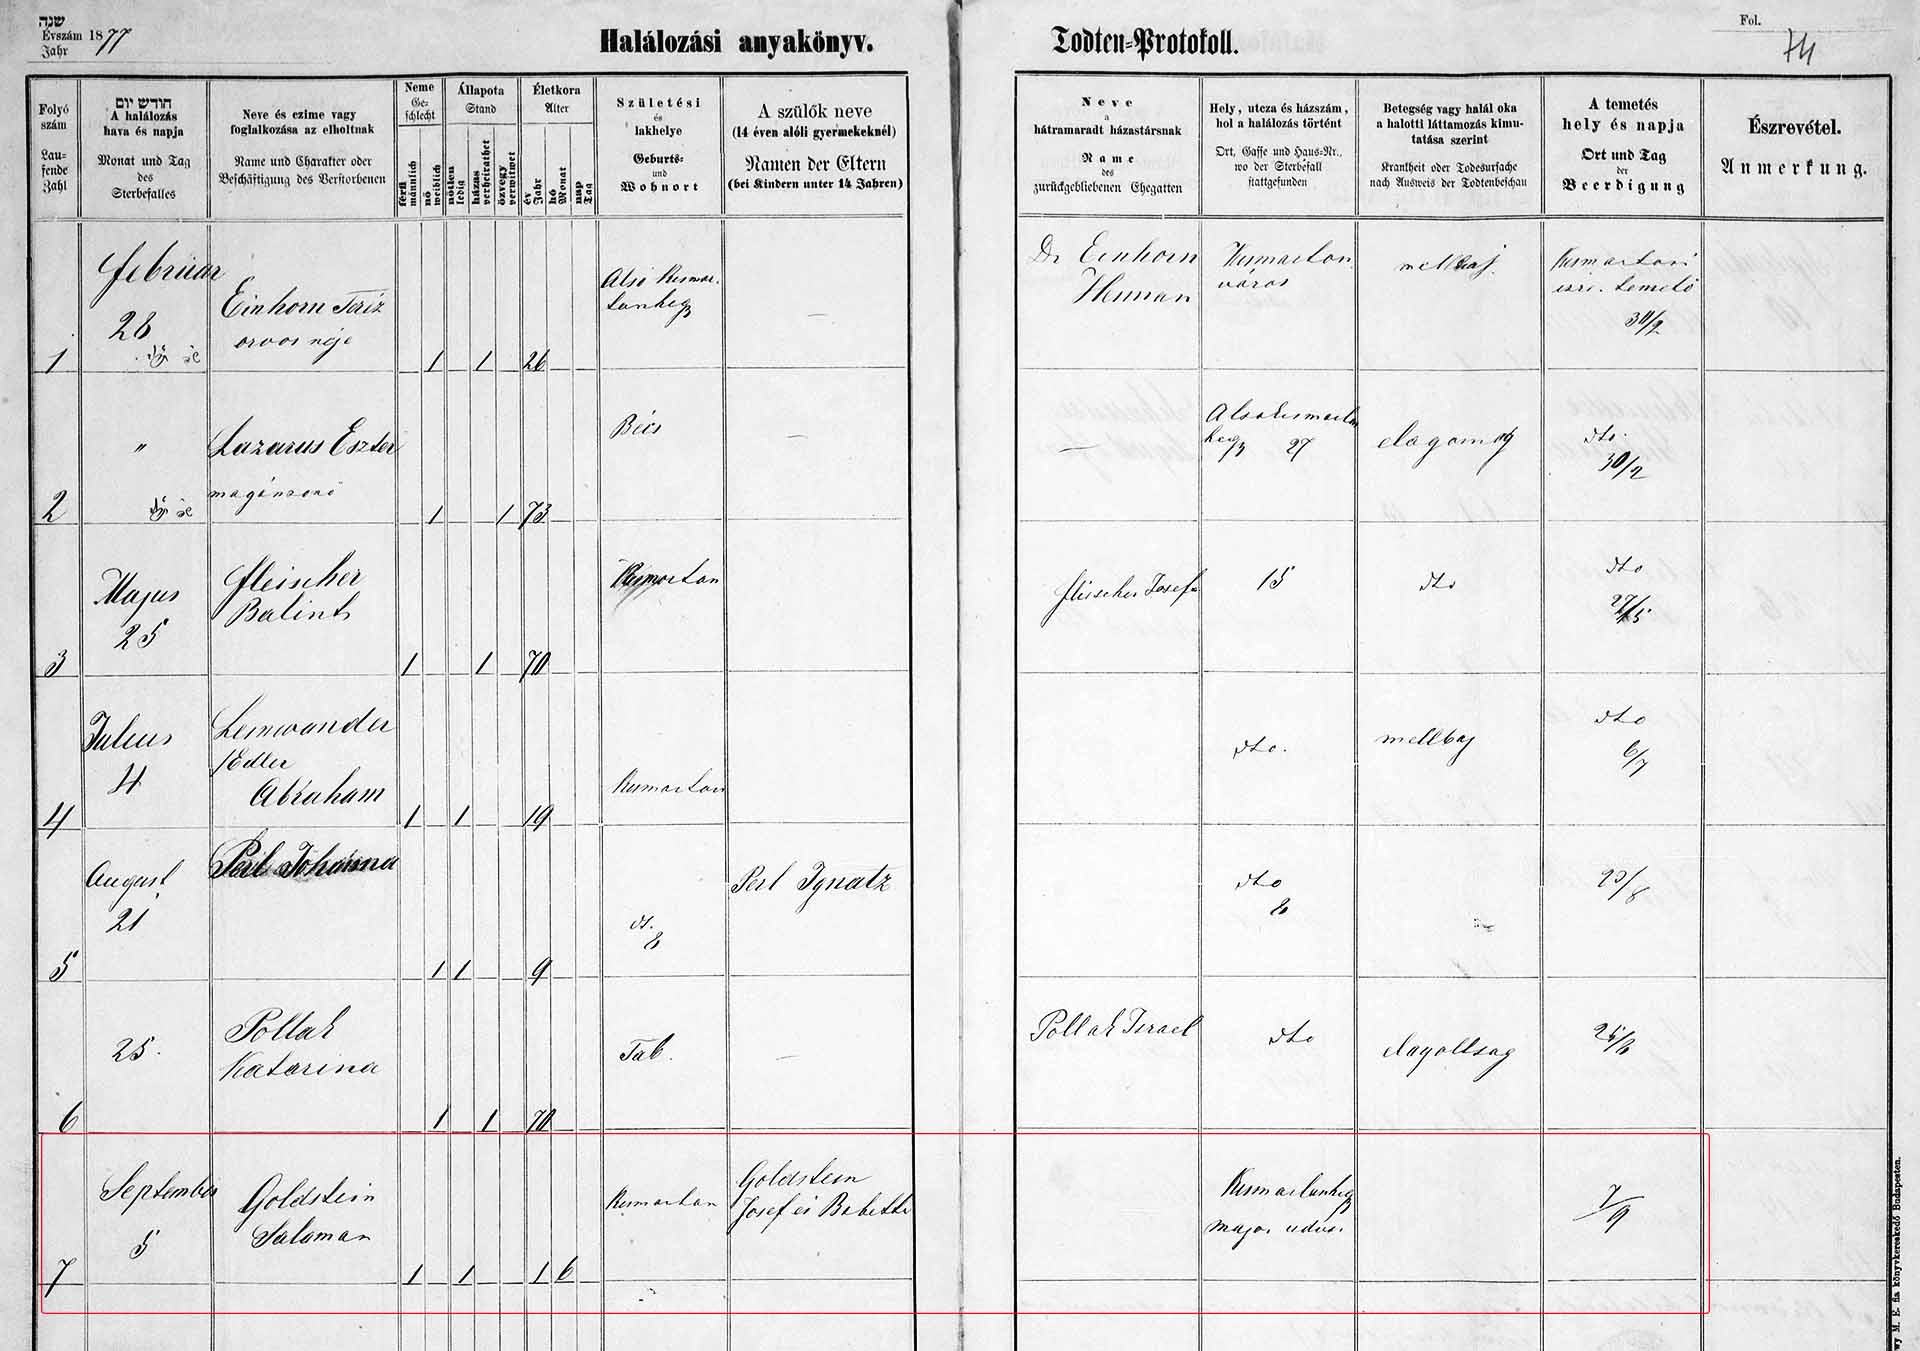 שנה
Évszám 1877
Jahr
Halálozási anyakönyv.
Todten-Protokoll.
Fol.
74
Folyó
szám
Lau-
fende
Zahl
חודש יום
A halálozás
hava és napja
Monat und Tag
des
Sterbefalles
Neve és czime vagy
foglalkozása az elholtnak
Name und Charakter oder
Beschäftigung des Verstorbenen
Neme
Ge-
schlecht
férfi
männlich
nő
weiblich
Állapota
Stand
nőtlen
ledig
házas
verheirathet
özvegy
verwitwet
Életkora
Alter
év
Jahr
hó
Monat
nap
Tag
Születési
és
lakhelye
Geburts-
und
Wohnort
A szülők neve
(14 éven alóli gyermekeknél)
Namen der Eltern
(bei Kindern unter 14 Jahren)
Neve
a
hátramaradt házastársnak
Name
des
zurückgebliebenen Ehegatten
Hely, utcza és házszám,
hol a halálozás történt
Ort, Gasse und Haus-Nr.,
wo der Sterbefall
stattgefunden
Betegség vagy halál oka
a halotti láttamozás kimu-
tatása szerint
Krantheit oder Todesursache
nach Ausweis der Todtenbeschau
A temetés
hely és napja
Ort und Tag
der
Beerdigung
Észrevétel.
Anmerkung.
1
februar
28
Einhorn Teréz
orvos neje
1 1 26
Alsó Kismar-
tonhegy
—
Dr Einhorn
Herman
Kismarton
város
mellbaj
Kismartoni
isr. temető
30/2
2
"
Lazarus Eszter
magánzónő
1 1 73
Bécs
—
—
Alsokismarton
hegy 27
dto.
30/2
3
Majus
25
fleischer
Balint
1 1 70
Kismarton
fleischer Josefa
15
dto
dto
27/5
4
Julius
4
Leinwander
/Edler
Abraham
1 1 19
Kismarton
dto.
mellbaj
dto
6/7
5
August
21
Perl Johanna
1 1 9
dt.
8
Perl Ignatz
dto
8
23/8
6
25.
Pollak
Katarina
1 1 70
Tab.
—
Pollak Israel
dto
7
September
5
Goldstein
Salamon
1 1 1 6
Kismarton
Goldstein
Josef és Babette
Kismartonhegy
major udvar
7/9
M. E. fia könyvkereskedő Budapesten.